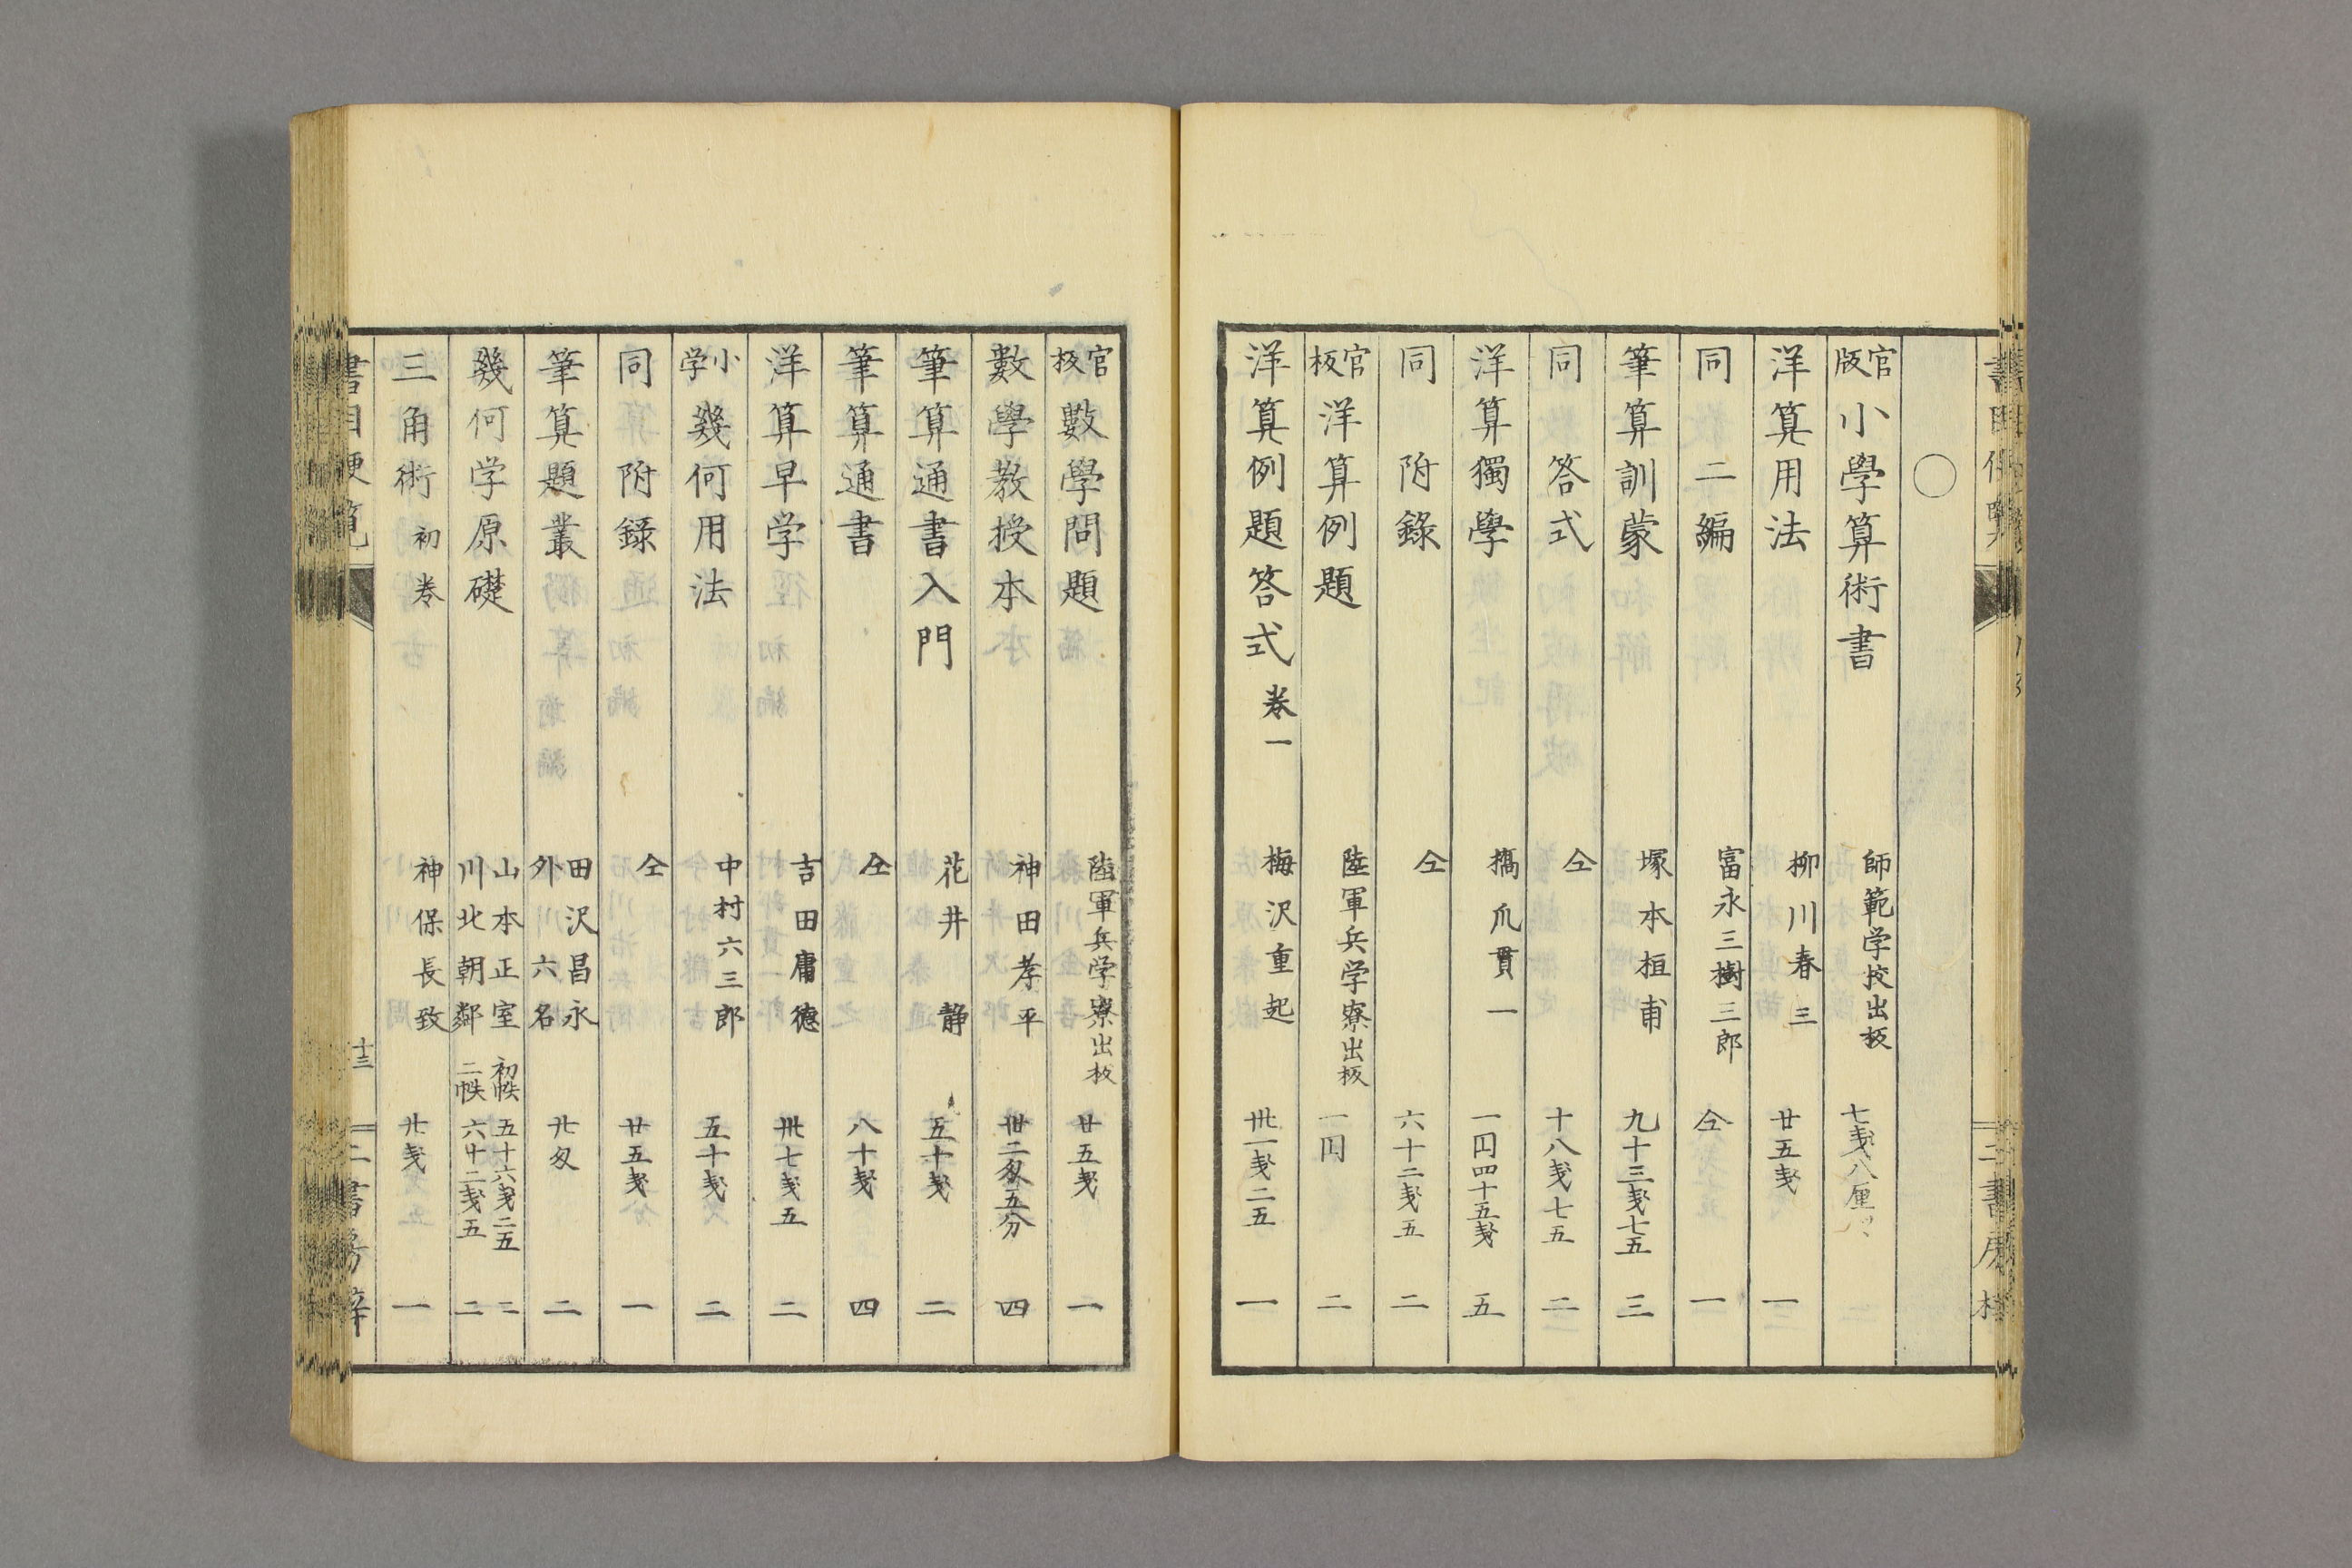 ○
官版 小學算術書 師範学校出板 七戔八厘
洋算用法 柳川春三 廿五戔 一
同二編 富永三樹三郎 仝 一
筆算訓蒙 塚本桓甫 九十三戔七五 三
同 答式 仝 十八戔七五 二
洋算獨學 橋爪貫一 一円四十五戔 五
同 附錄 仝 六十二戔五 二
官板 洋算例題 陸軍兵学寮出板 一円 二
洋算例題答式 卷一 梅沢重起 卅一戔二五 一
官板 數學問題 陸軍兵学寮出板 廿五戔 一
數學教授本 神田孝平 卌二匁五分 四
筆算通書入門 花井静 五十戔 二
筆算通書 仝 八十戔 四
洋算早学 吉田庸德 卅七戔五 二
小学 幾何用法 中村六三郎 五十戔 二
同 附録 仝 廿五戔 一
筆算題叢 田沢昌永 外六名 廿匁 二
幾何学原礎 山本正室 川北朝鄰 初帙 五十六戔二五 二 二帙 六十二戔五 二
三角術 初卷 神保長致 廿戔 一
十三